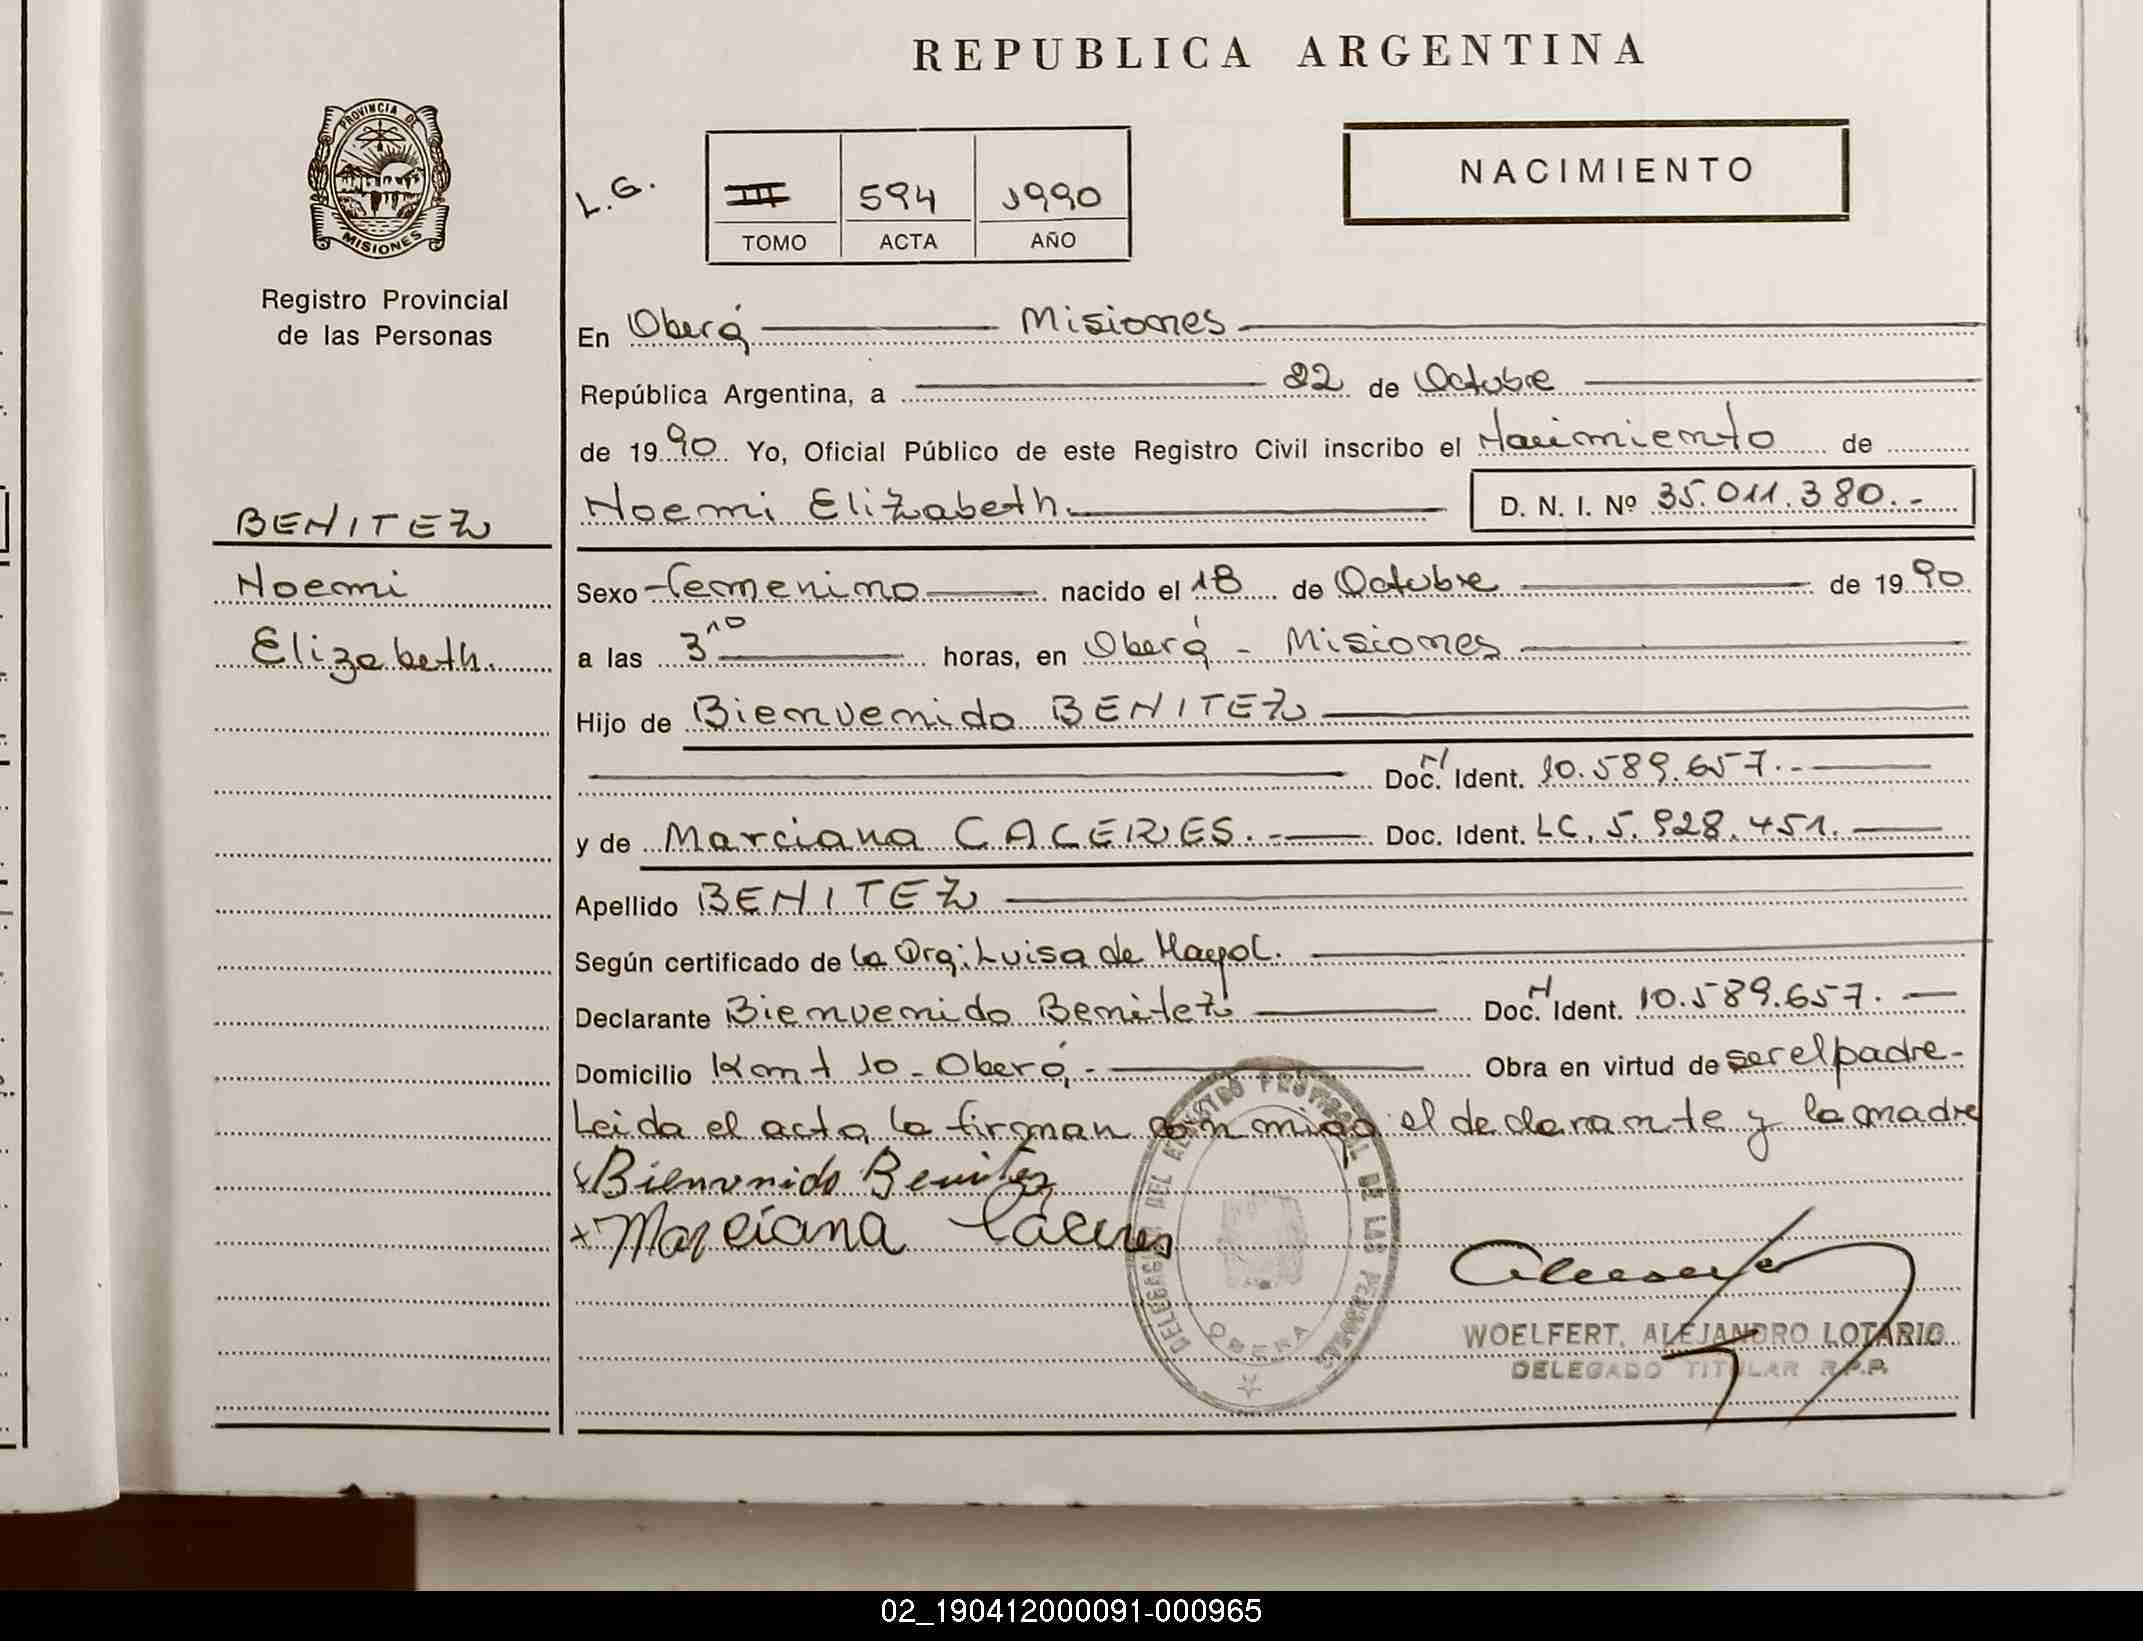 REPUBLICA ARGENTINA
PROVINCIA DE
MISIONES
Registro Provincial
de las Personas
L.G.
III 594 1990
TOMO ACTA AÑO
NACIMIENTO
En Oberá Misiones
República Argentina, a 22 de Octubre
de 1990 Yo, Oficial Público de este Registro Civil inscribo el Nacimiento de
Noemi Elizabeth. D. N. I. Nº 35.011.380.-
BENITEZ
Noemi
Elizabeth.
Sexo femenino nacido el 18 de Octubre de 1990
a las 3 10 horas, en Oberá - Misiones
Hijo de Bienvenido BENITEZ
Doc. N Ident. 10.589.657.-
y de Marciana CACERES.- Doc. Ident. LC. 5.928.451.
Apellido BENITEZ
Según certificado de la Luisa de
Declarante Bienvenido Benitez Doc. N Ident. 10.589.657.-
Domicilio Km 10 - Oberá.- Obra en virtud de ser el padre-
Leida el acta, la firman conmigo el declarante y la madre
x Bienvenido Benitez
x Marciana Caceres
DELEGACION DEL REGISTRO PROVINCIAL DE LAS PERSONAS
OBERA
WOELFERT, ALEJANDRO LOTARIO
DELEGADO TITULAR R.P.P.
02_190412000091-000965